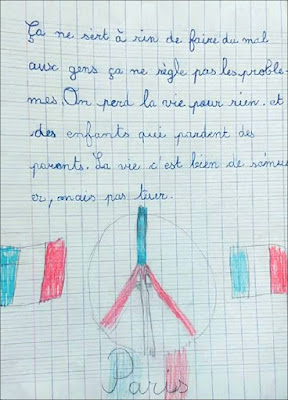 Ça ne sert à rin de faire du mal
aux gens ça ne règle pas les problè-
mes. On perd la vie pour rien. et
des enfants qui pardent des
parents. La vie c'est bien de s'émus
er, mais pas tuer.
Paris